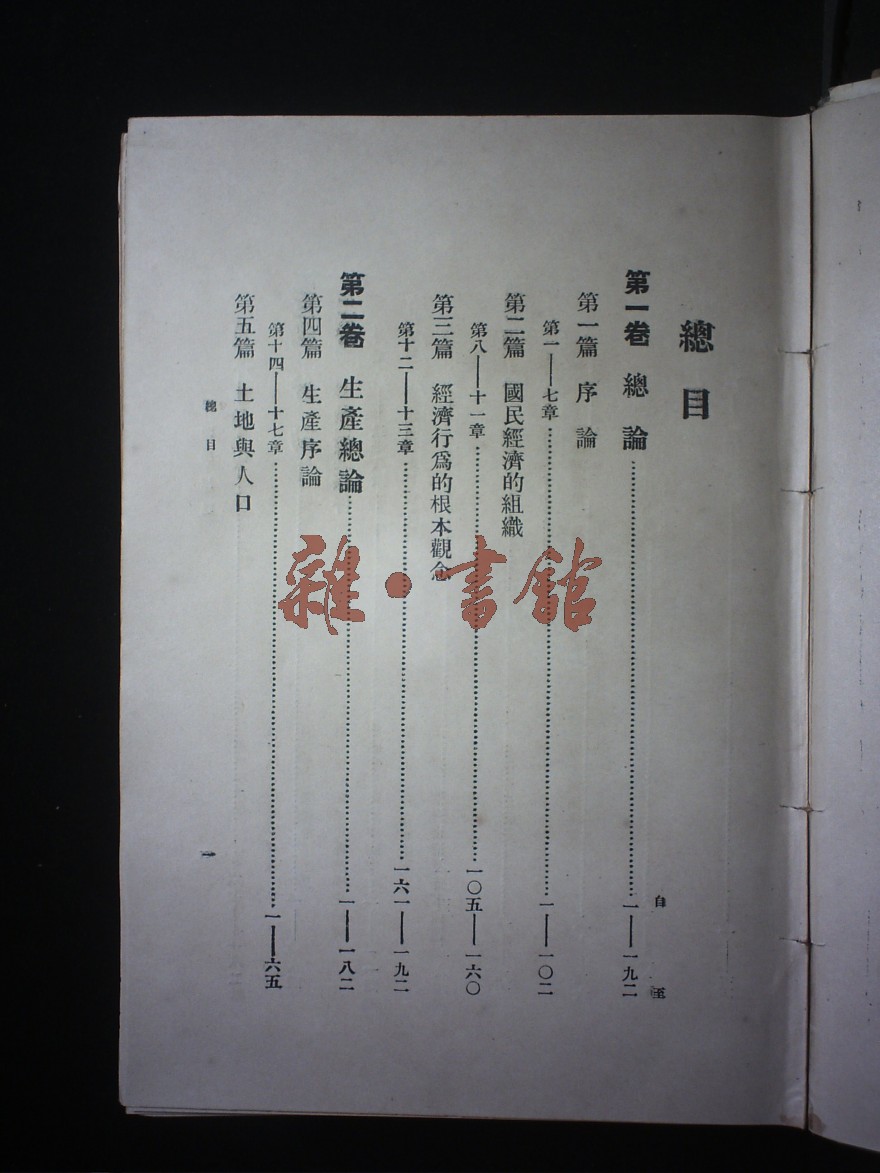 總目
自 至
第一卷 總論……一——一九二
第一篇 序論
第一——七章……一——一〇二
第二篇 國民經濟的組織
第八——十一章……一〇五——一六〇
第三篇 經濟行爲的根本觀念
第十二——十三章……一六一——一九二
第二卷 生產總論……一——一八二
第四篇 生產序論
第十四——十七章……一——六五
第五篇 土地與人口
總目
一
雜·書館